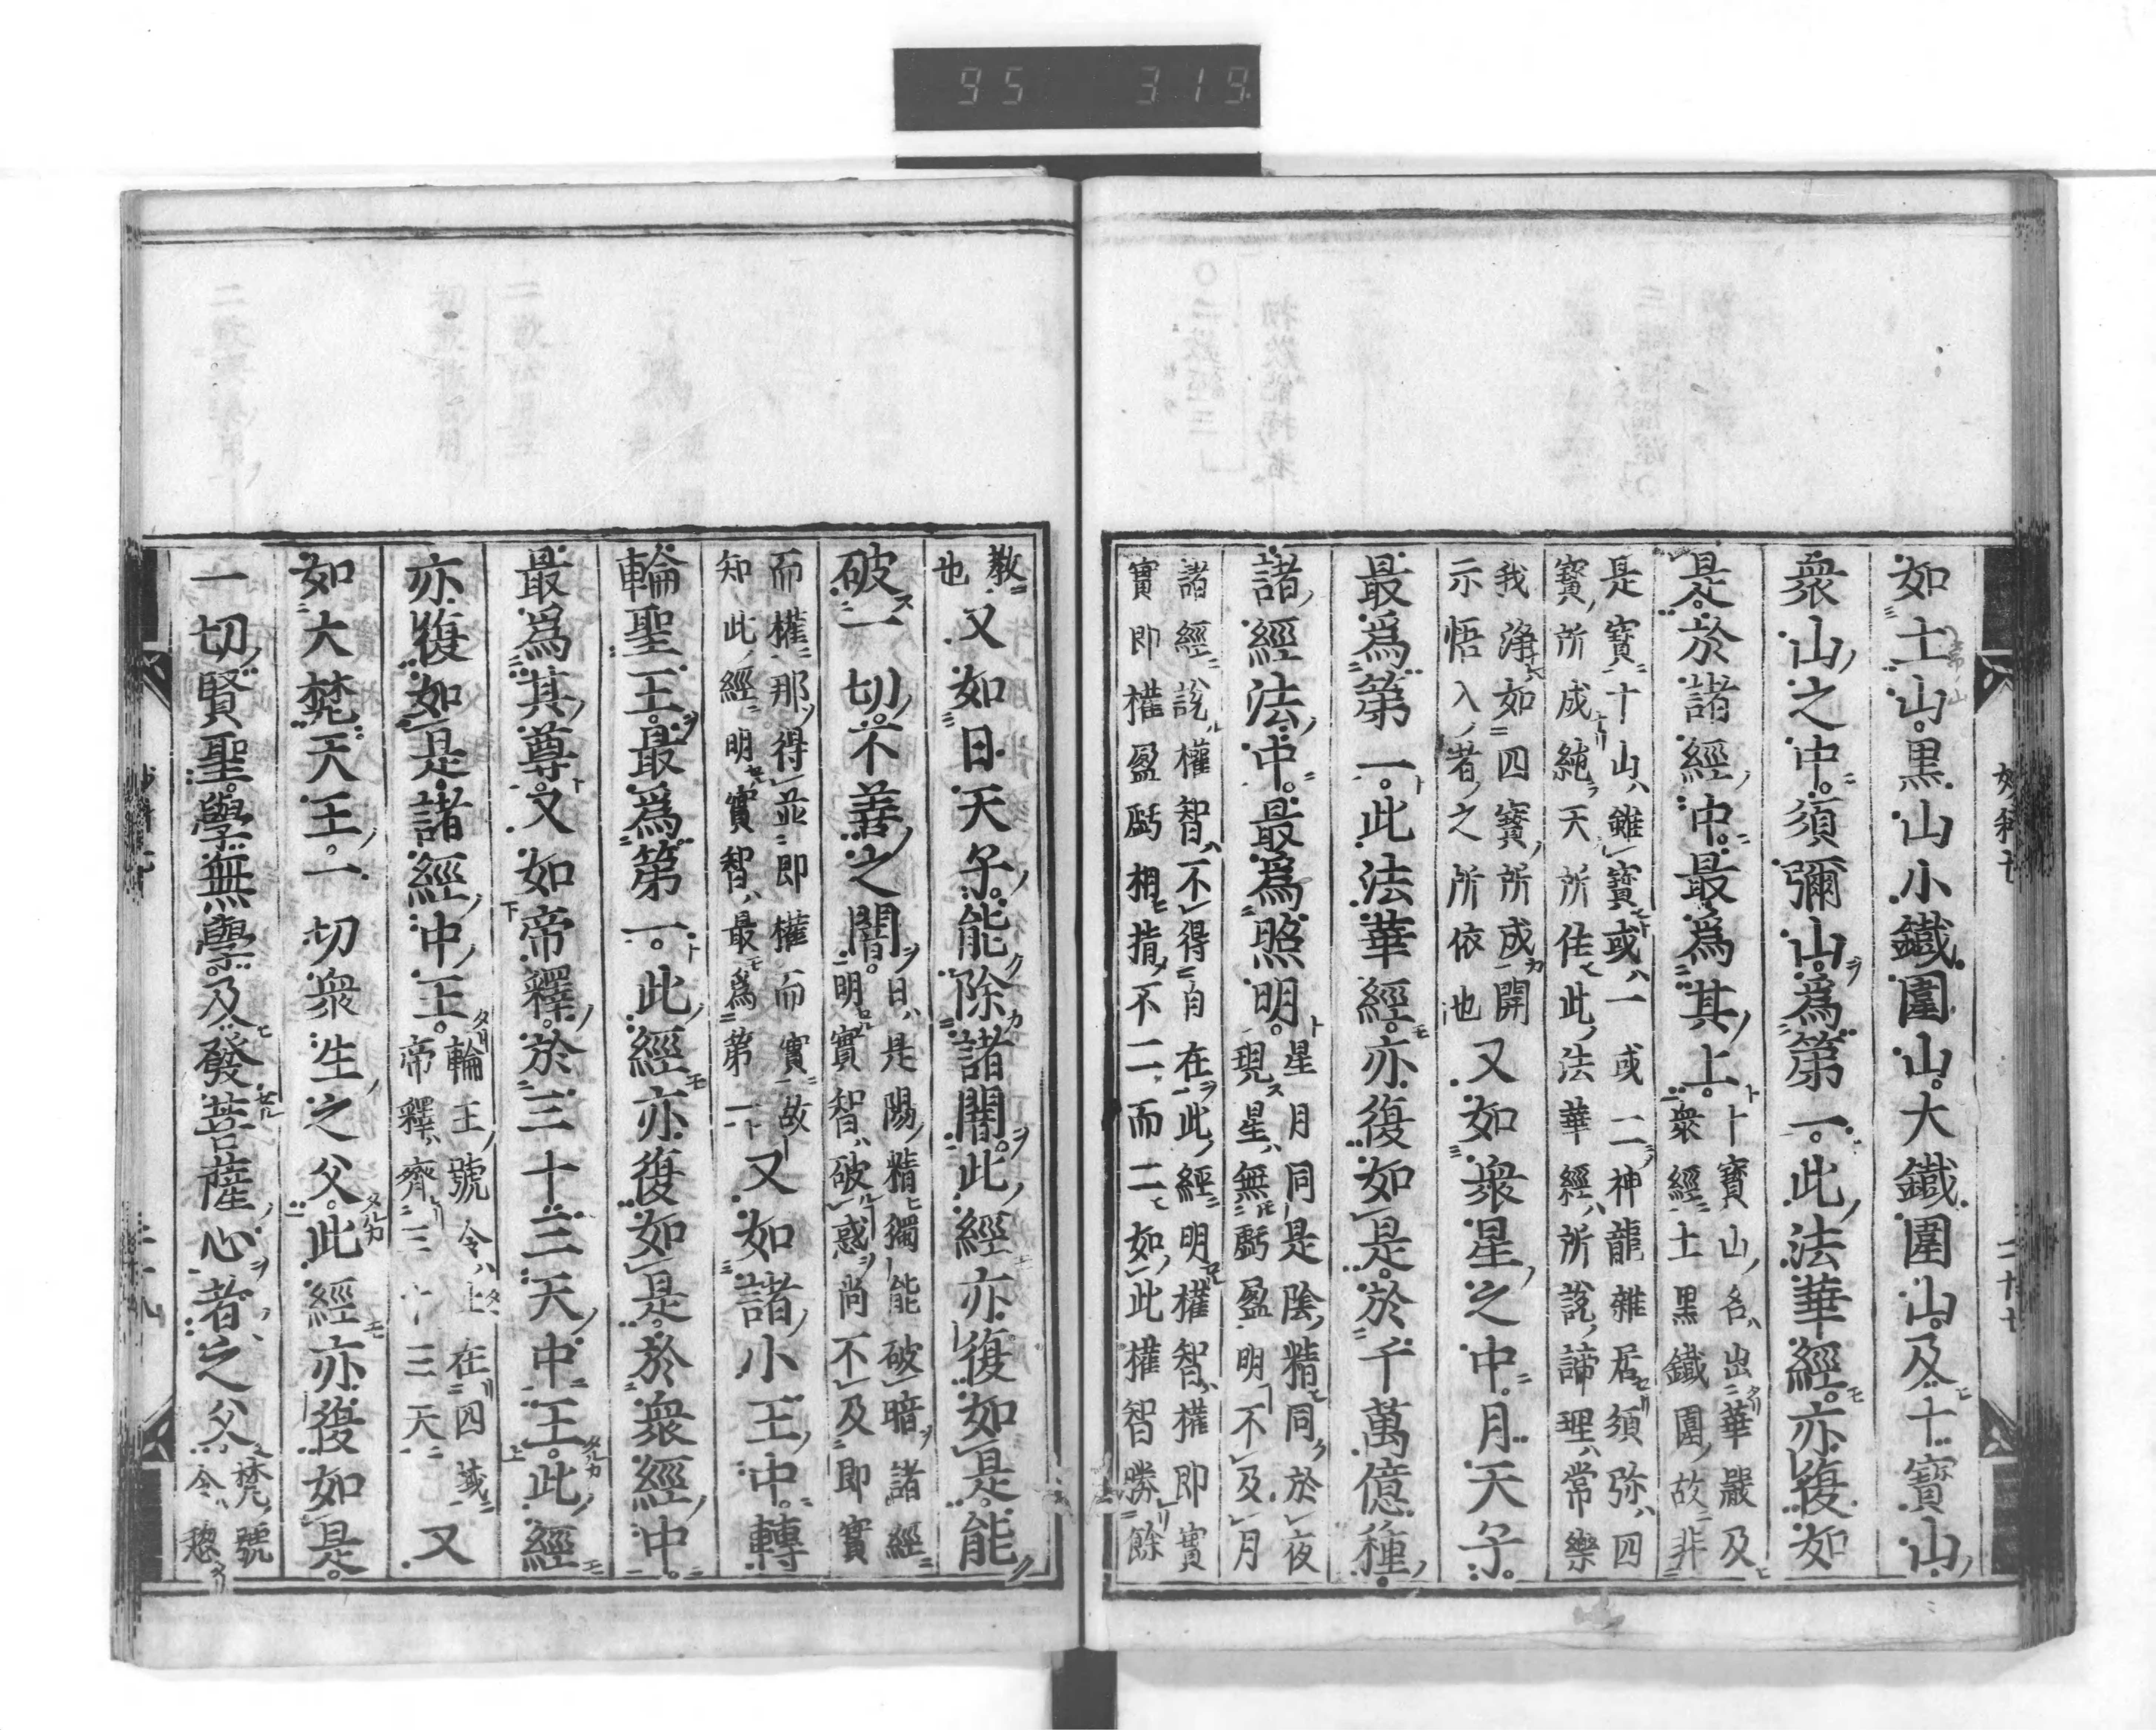 95 319
如土山。黒山小鐵圍山。大鐵圍山。及十寶山。
衆山之中。須彌山。為第一。此法華經。亦復如
是。於諸經中。最為其上。十寶山名出華嚴及
衆經土黒鐵圍故非
是寶十山雖寶或一或二神龍雜居須弥四
寶所成純天所住此法華經所說諦理常樂
我淨如四寶所成開
示悟入者之所依也又如衆星之中。月天子。
最為第一。此法華經。亦復如是。於千萬億種。
諸經法中。最為照明。星月同是陰精同於夜
現星無虧盈明不及月
諸經說權智不得自在此經明權智權即實
實即權盈虧相指不二而二如此權智勝餘
教
也又如日天子。能除諸闇。此經亦復如是。能
破一切不善之闇。日是陽精獨能破暗諸經
明實智破惑尚不及即實
而權那得並即權而實故
知此經明實智最為第一又如諸小王中。轉
輪聖王。最為第一。此經亦復如是。於衆經中。
最為其尊。又如帝釋。於三十三天中王。此經
亦復如是諸經中王。輪王號令上在四域
帝釋齊三十三天又
如大梵天王。一切衆生之父。此經亦復如是。
一切賢聖。學無學。及發菩薩心者之父。梵號
令愍